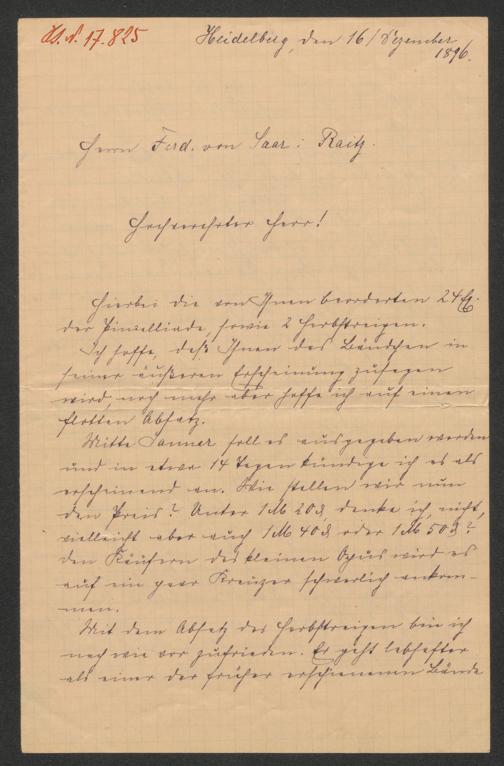 H.I.N. 17.825
Heidelberg, den 16/ Dezember
1896.
Herrn Ferd. von Saar: Raitz.
Hochverehrter Herr!
Hierbei die von Ihnen beorderten 24 Ex.
der Pincelliade, sowie 2 Herbstreigen.
Ich hoffe, daß Ihnen das Bändchen in
seiner äußeren Erscheinung zusagen
wird, noch mehr aber hoffe ich auf einen
flotten Absatz.
Mitte Januar soll es ausgegeben werden
und in etwa 14 Tagen kündige ich es als
erscheinend an. Wie stellen wir nun
den Preis? Unter 1 M 20 ₰ denke ich, nicht,
vielleicht aber auch 1 M 40 ₰ oder 1 M 50 ₰?
Den Käufern des kleinen Opus wird es
auf ein paar Kreuzer schwerlich ankom-
men.
Mit dem Absatz des Herbstreigen bin ich
nach wie vor zufrieden. Er geht lebhafter
als einer der früher erschienenen Bände